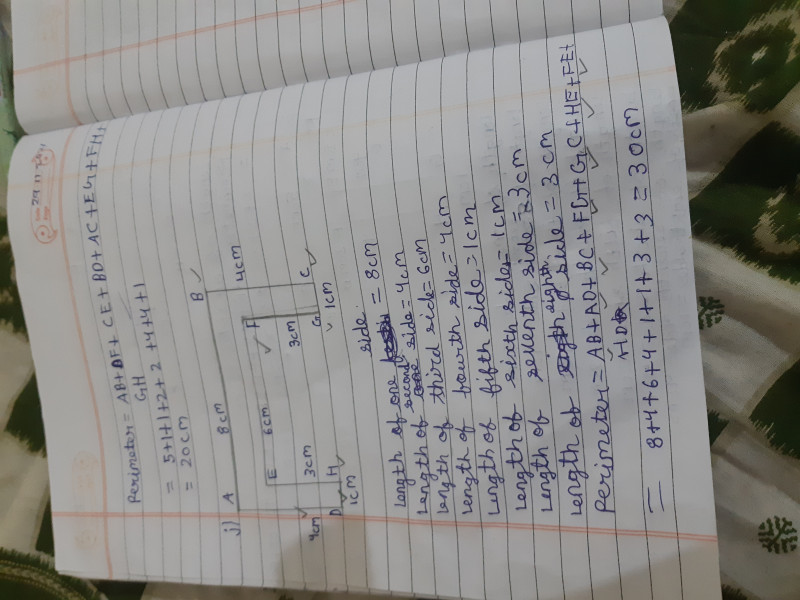 Perimeter = AB + DF + CE + BD + AC + EG + FH +
GH
= 5+1+1+2+2+4+4+1
= 20cm
j)
A
8cm
B
4cm
E
6cm
F
4cm
3cm
3cm
D
H
G
C
1cm
1cm
Length of one side = 8cm
Length of second side = 4cm
Length of third side = 6cm
Length of fourth side = 4cm
Length of fifth side = 1cm
Length of sixth side = 1cm
Length of seventh side = 3cm
Length of eighth side = 3cm
Perimeter = AB + AD + BC + FG + GC + HE + FE +
HD
= 8+4+6+4+1+1+3+3 = 30cm